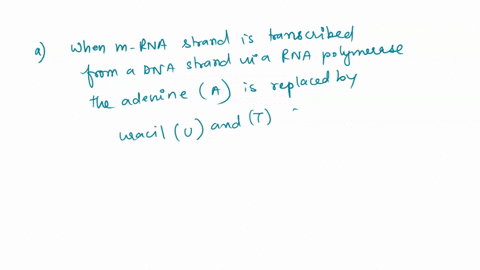 a) When m-RNA strand is transcribed
from a DNA strand via a RNA polymerase
the adenine (A) is replaced by
uracil (U) and (T)